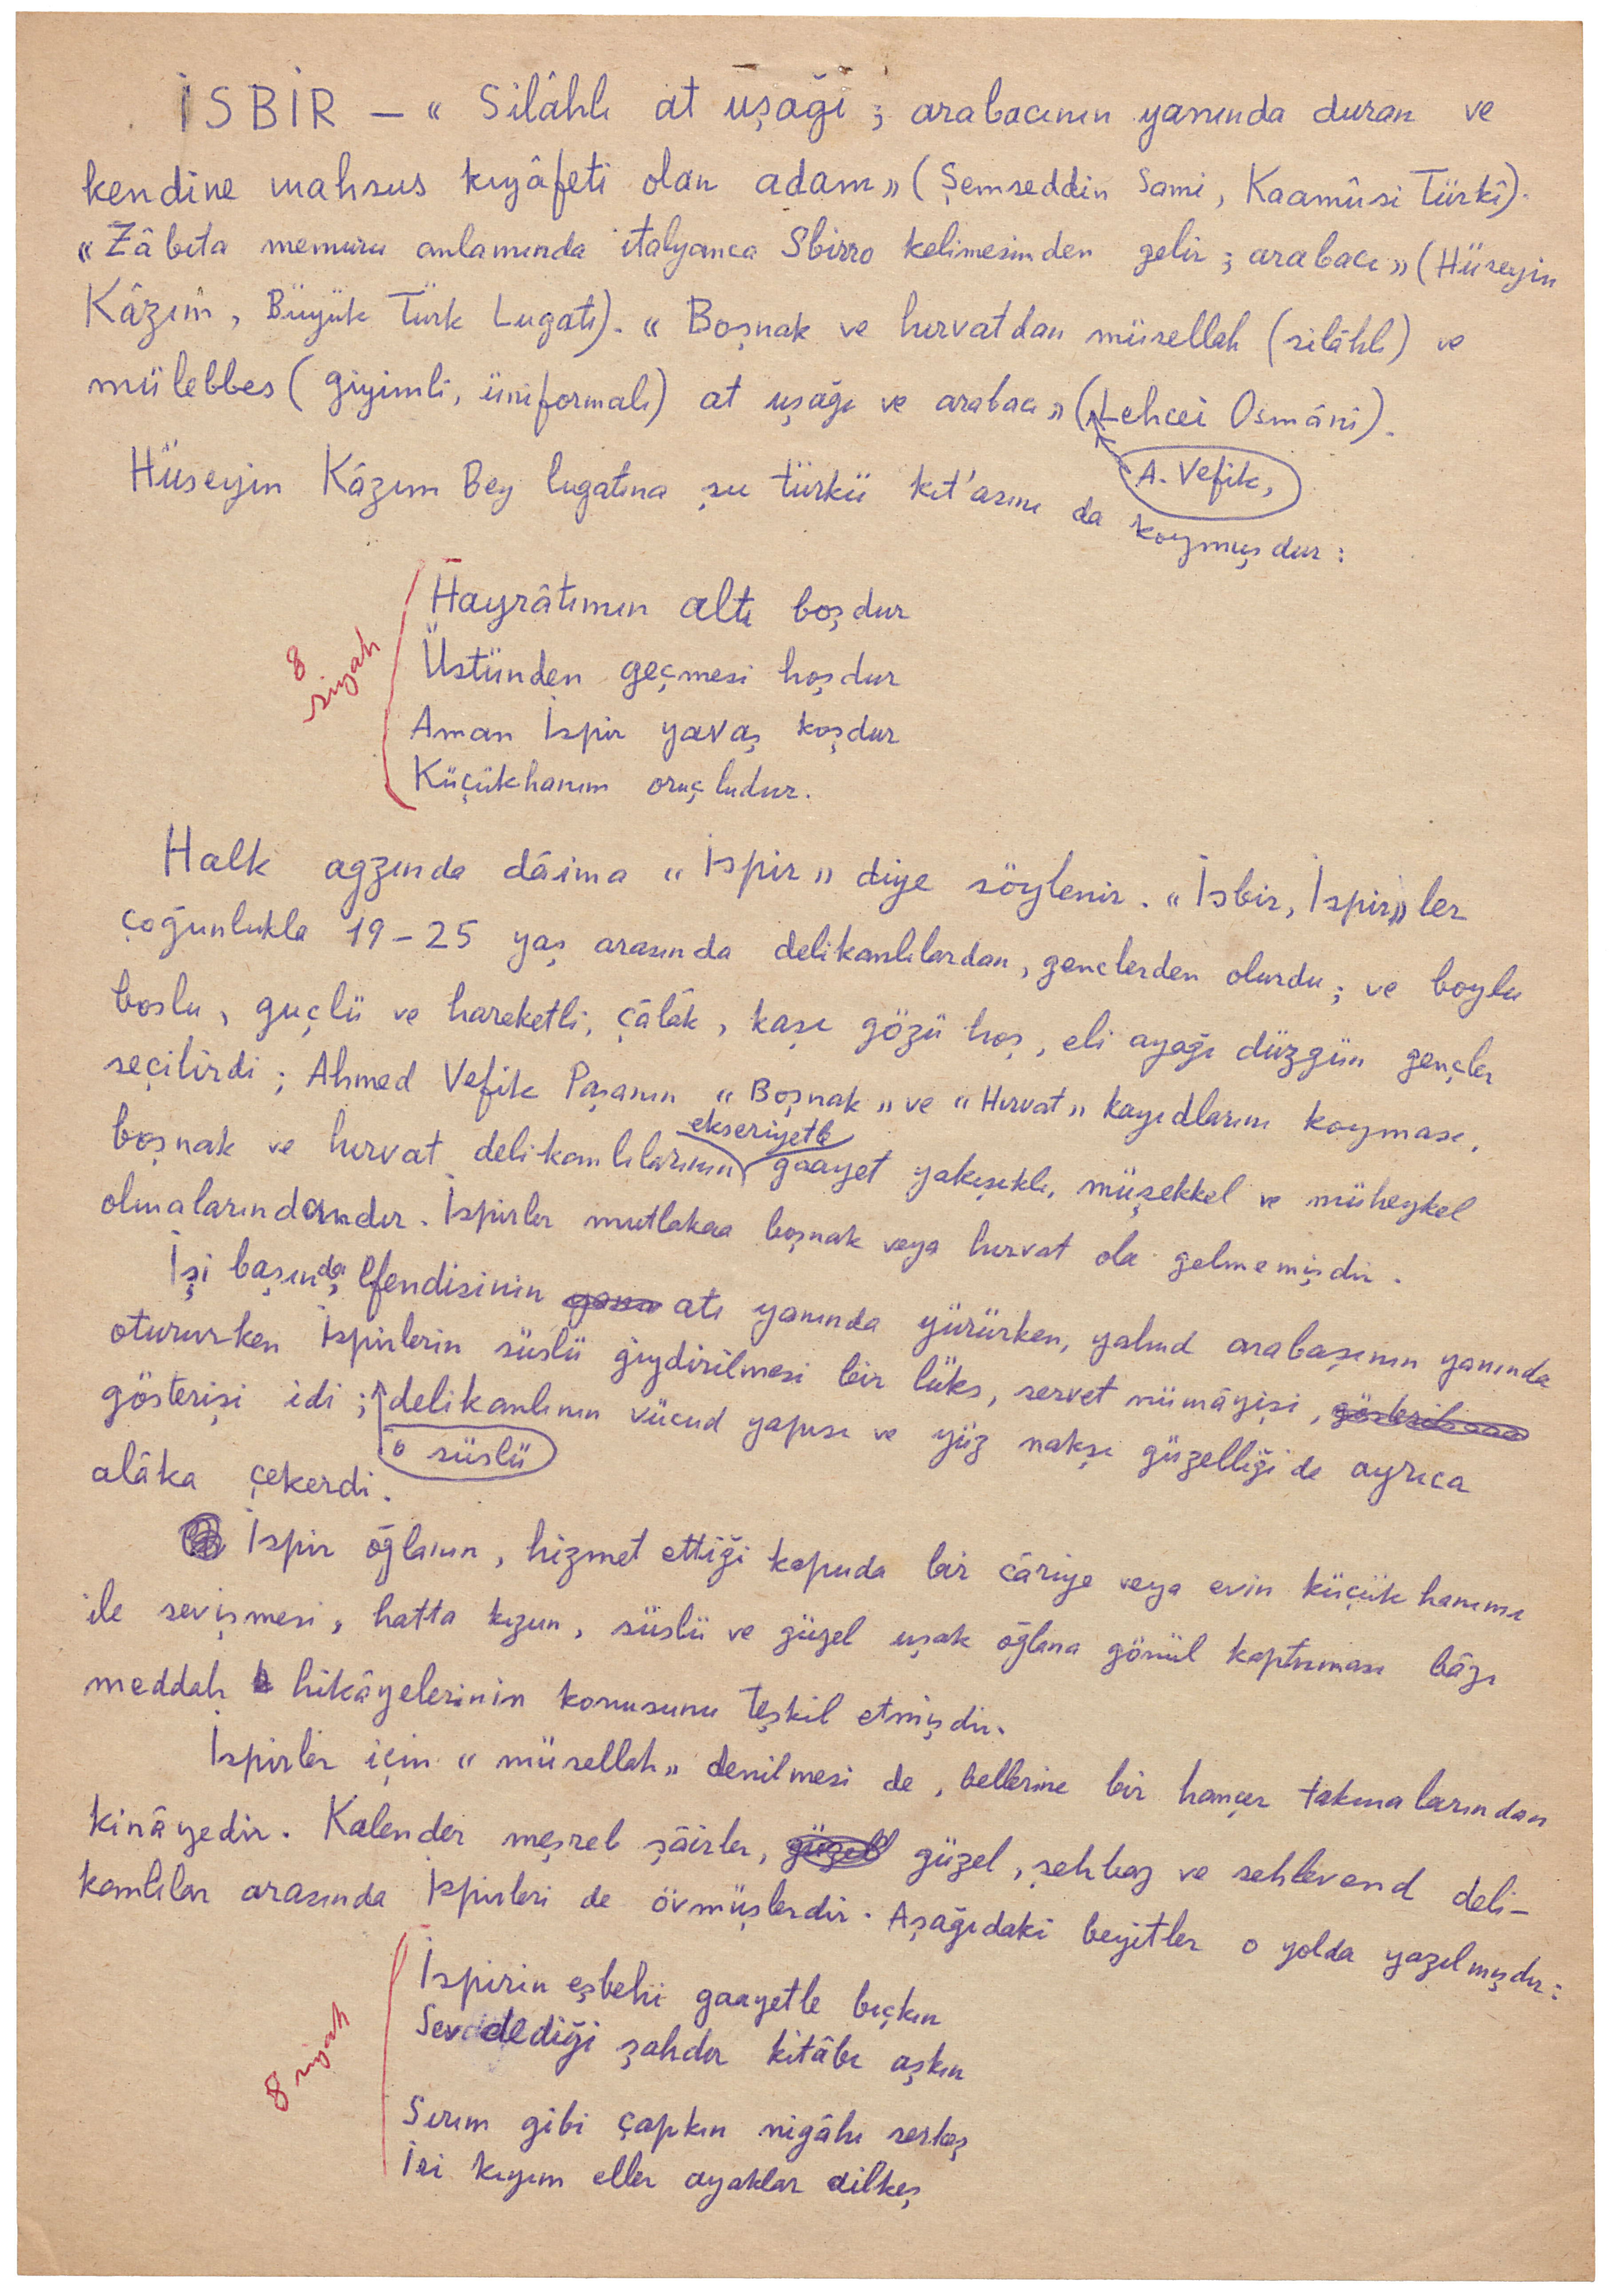 İSBİR — « Silâhlı at uşağı ; arabacının yanında duran ve
kendine mahsus kıyâfeti olan adam » ( Şemseddin Sami, Kaamûsi Türkî).
« Zâbıta memuru anlamında italyanca Sbirro kelimesinden gelir ; arabacı » ( Hüseyin
Kâzım, Büyük Türk Lugatı). « Boşnak ve hırvatdan müsellah (silâhlı) ve
mülebbes ( giyimli, üniformalı) at uşağı ve arabacı » (Lehcei Osmânî).
A. Vefik,
Hüseyin Kâzım Bey lugatına şu türkü kıt'asını da koymuşdur :
Hayrâtımın altı boşdur
8 siyah
Üstünden geçmesi hoşdur
Aman İspir yavaş koşdur
Küçükhanım oruçludur.
Halk agzında dâima « İspir » diye söylenir. « İsbir, İspir» ler
çoğunlukla 19-25 yaş arasında delikanlılardan, genclerden olurdu ; ve boylu
boslu, guçlü ve hareketli, çâlâk, kaşı gözü hoş, eli ayağı düzgün gençler
seçilirdi ; Ahmed Vefik Paşanın « Boşnak » ve « Hırvat » kayıdlarını koyması,
ekseriyetle
boşnak ve hırvat delikanlılarının gaayet yakışıklı, müşekkel ve müheykel
olmalarındandır. İspirler mutlakaa boşnak veya hırvat ola gelmemişdir.
İşi başında, efendisinin atı yanında yürürken, yahud arabaşının yanında
otururken İspirlerin süslü giydirilmesi bir lüks, servet nümâyişi,
gösterişi idi ; delikanlının vücud yapısı ve yüz nakşı güzelliği de ayrıca
o süslü
alâka çekerdi.
İspir oğlanın, hizmet ettiği kapuda bir câriye veya evin küçük hanımı
ile sevişmesi, hatta kızın, süslü ve güzel uşak oğlana gönül kaptırması bâzı
meddah hikâyelerinin konusunu teşkil etmişdir.
İspirler için « müsellah » denilmesi de, bellerine bir hançer takmalarından
kinâyedir. Kalender meşreb şâirler, güzel, şehbaz ve şehlevend deli-
kanlılar arasında İspirleri de övmüşlerdir. Aşağıdaki beyitler o yolda yazılmışdır :
İspirin eşbehi gaayetle bıçkın
Sev dediği şahdır kitâbı aşkın
8 siyah
Sırım gibi çapkın nigâhı serkeş
İri kıyım eller ayaklar dilkeş